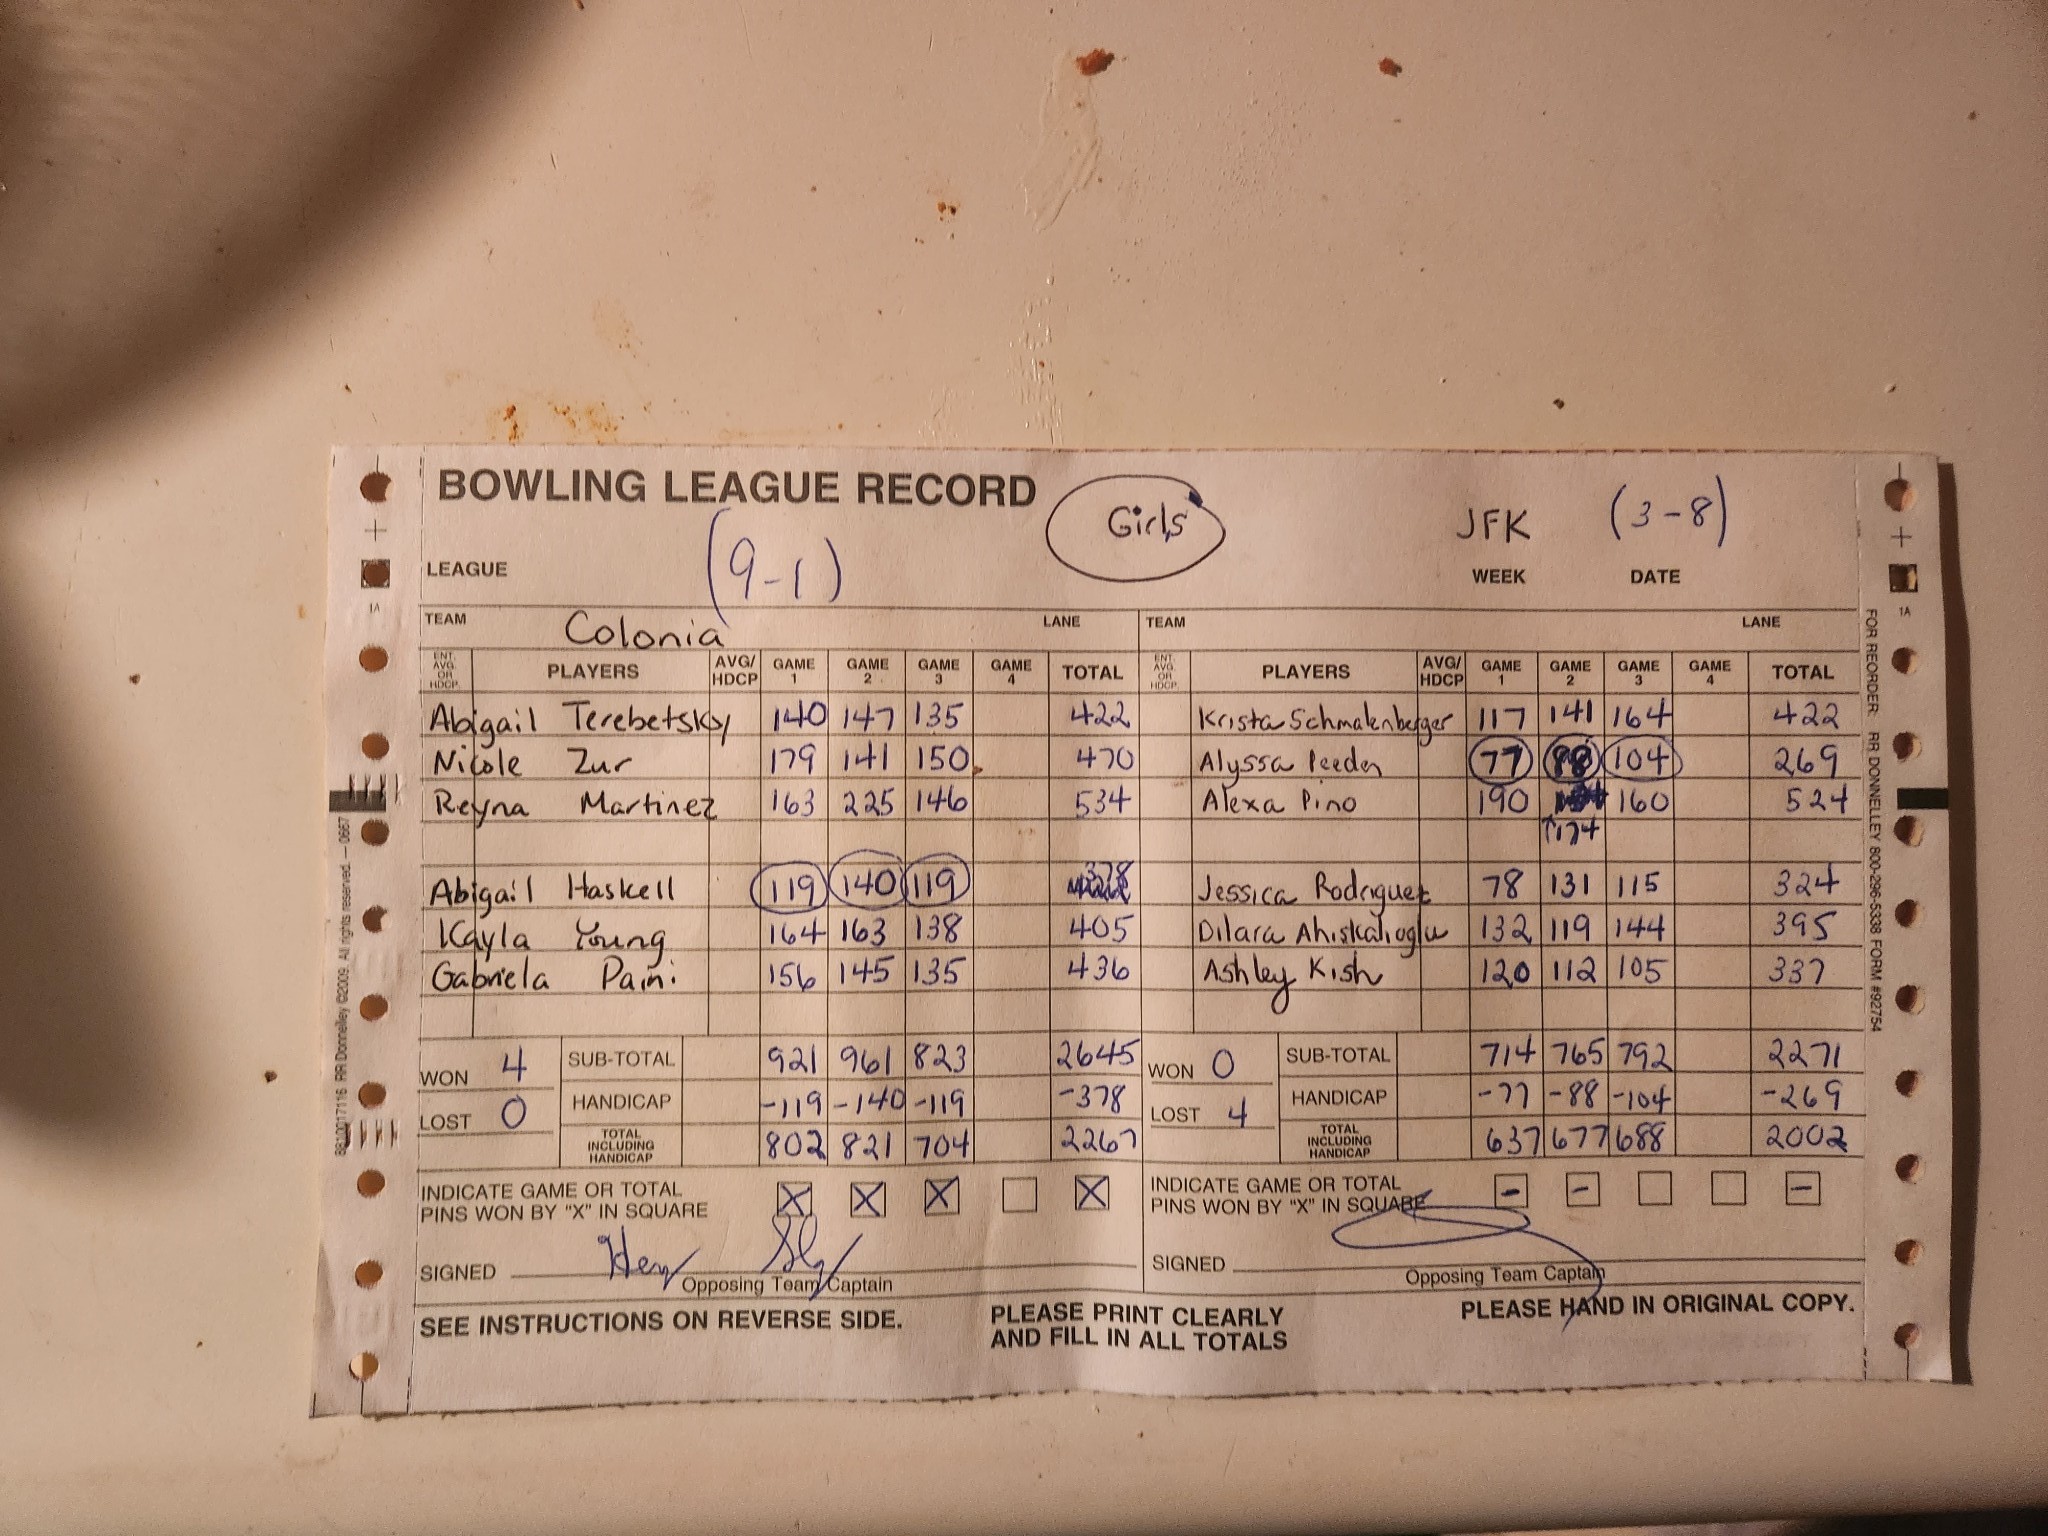 BOWLING LEAGUE RECORD
Girls
JFK (3-8)
(9-1)
LEAGUE WEEK DATE
TEAM Colonia LANE TEAM LANE
ENT. AVG. OR HDCP. PLAYERS AVG/HDCP GAME 1 GAME 2 GAME 3 GAME 4 TOTAL ENT. AVG. OR HDCP. PLAYERS AVG/HDCP GAME 1 GAME 2 GAME 3 GAME 4 TOTAL
Abigail Terebetsky 140 147 135 422 Krista Schmalenberger 117 141 164 422
Nicole Zur 179 141 150 470 Alyssa Peeden 77 88 104 269
Reyna Martinez 163 225 146 534 Alexa Pino 190 160 524
↑174
Abigail Haskell 119 140 119 378 Jessica Rodriguez 78 131 115 324
Kayla Young 164 163 138 405 Dilara Ahiskalioglu 132 119 144 395
Gabriela Paini 156 145 135 436 Ashley Kish 120 112 105 337
WON 4 SUB-TOTAL 921 961 823 2645 WON 0 SUB-TOTAL 714 765 792 2271
LOST 0 HANDICAP -119 -140 -119 -378 LOST 4 HANDICAP -77 -88 -104 -269
TOTAL INCLUDING HANDICAP 802 821 704 2267 TOTAL INCLUDING HANDICAP 637 677 688 2002
INDICATE GAME OR TOTAL X X X X INDICATE GAME OR TOTAL - - -
PINS WON BY "X" IN SQUARE PINS WON BY "X" IN SQUARE
SIGNED SIGNED
Opposing Team Captain Opposing Team Captain
SEE INSTRUCTIONS ON REVERSE SIDE. PLEASE PRINT CLEARLY AND FILL IN ALL TOTALS PLEASE HAND IN ORIGINAL COPY.
1A
1A
RR Donnelley ©2009. All rights reserved. — 0667
FOR REORDER: RR DONNELLEY 800-296-5338 FORM #92754